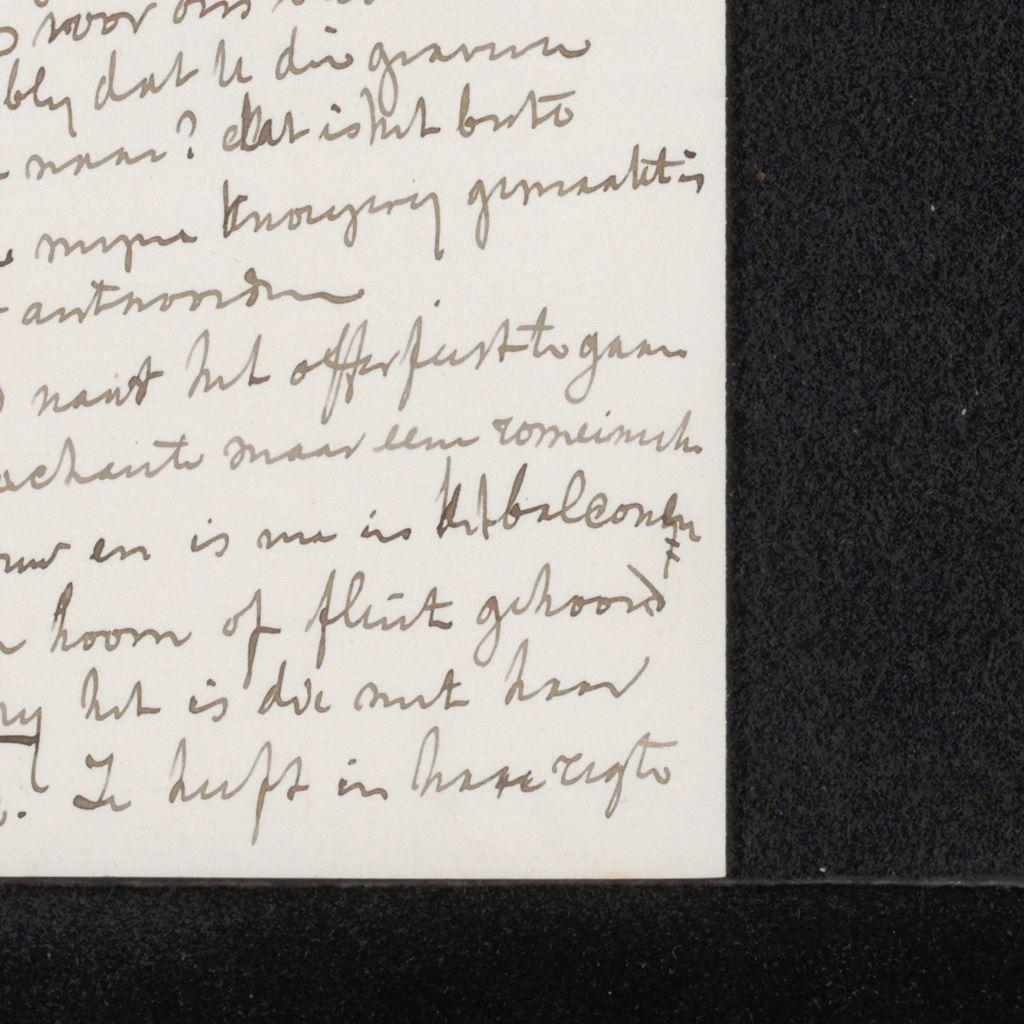 voor ons
bly dat U die gravure
naar? dat is het beste
myne knoeyerij gemaakt is
antwoorden
naast het offerfeest te gaan
chante maar eene romeinsche
en is nu in het balcon en
hoorn of fluit gehoord
het is die met haar
Ze heeft in hare regte